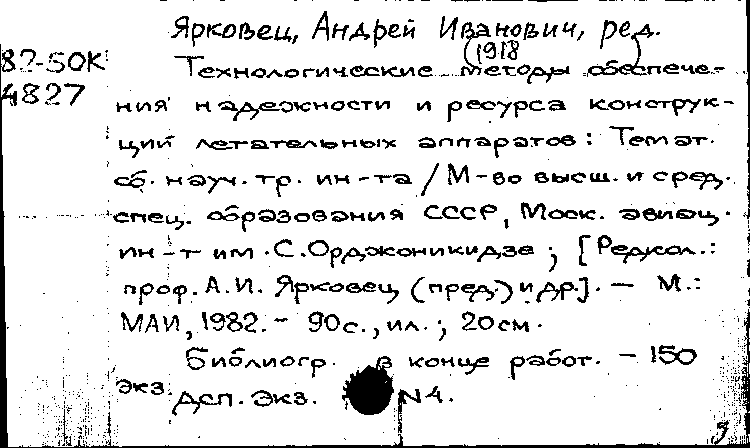 Ярковец, Андрей Иванович, ред.
(1918 )
82-5ОК
4827
Технологические методы обеспече-
ния надежности и ресурса конструк-
ций летательных аппаратов: Темат.
сб. науч. тр. ин-та / М-во высш. и сред.
спец. образования СССР, Моск. авиац.
ин-т им. С. Орджоникидзе; [Редкол.:
проф. А.И. Ярковец (пред.) и др.]. — М.:
МАИ, 1982. - 90 с., ил.; 20 см.
Библиогр. в конце работ. - 150
экз.
ДСП. Экз. N 4.